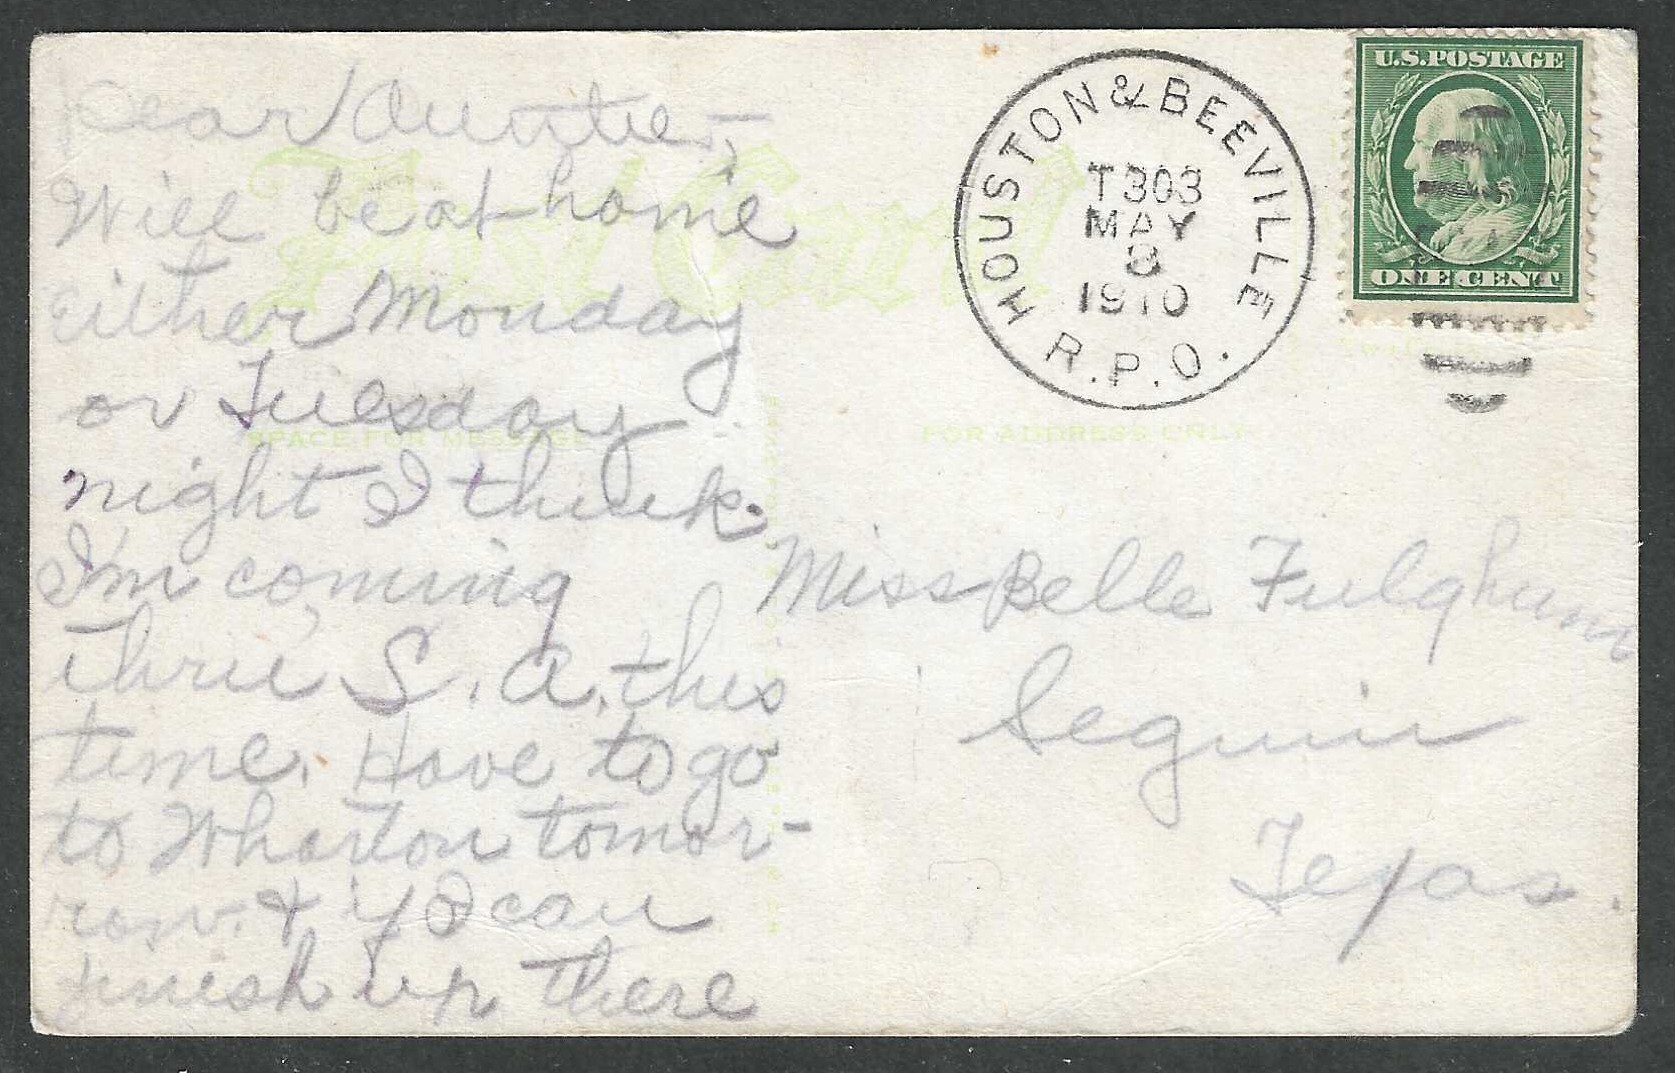 Dear Auntie,—
Will be at home
either Monday
or Tuesday
night I think.
I'm coming
thru S. A. this
time. Have to go
to Wharton tomor-
row. & if I can
finish up there
Post Card
SPACE FOR MESSAGE
HOUSTON & BEEVILLE
T303
MAY
8
1910
R.P.O.
U.S.POSTAGE
ONE CENT
FOR ADDRESS ONLY
Miss Belle Fulghum
Seguin
Texas.